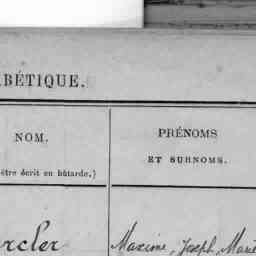 BÉTIQUE.
NOM.
être écrit en bâtarde.)
PRÉNOMS
ET SURNOMS.
rcler
Maxime, Joseph, Marie